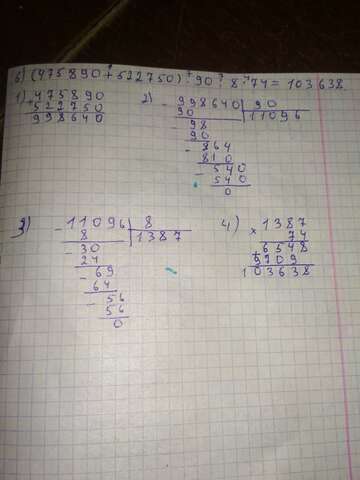 б) (475890 + 522750) : 90 : 8 · 74 = 103638.
1) 475890
+ 522750
998640
2) - 998640 | 90
90 | 11096
- 98
90
- 864
810
- 540
540
0
3) - 11096 | 8
8 | 1387
- 30
24
- 69
64
- 56
56
0
4) 1387
× 74
+ 6548
9709
103638